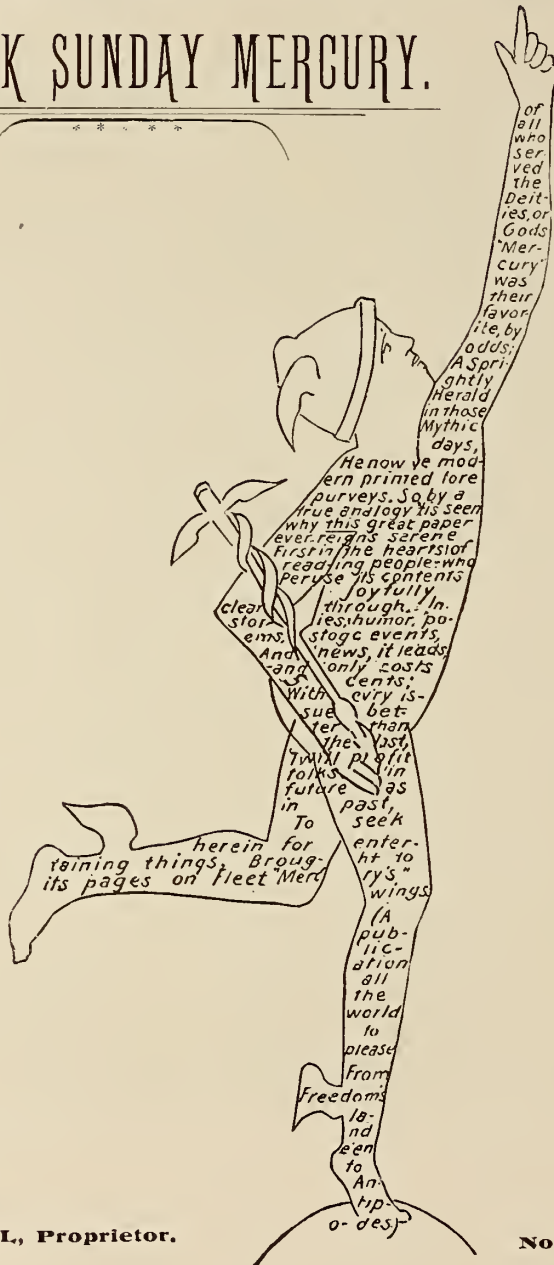 K SUNDAY MERCURY.
* * * * *
of
all
who
ser-
ved
the
Deit-
ies, or
Gods
"Mer-
cury"
was
their
favor-
ite, by
odds;
A Spri-
ghtly
Herald
in those
Mythic
days,
He now ye mod-
ern primed lore
purveys. So by a
true analogy tis seen
why this great paper
ever reigns serene
First in the hearts of
reading people-who
Peruse its contents
joyfully
clear through. In
stor- ies, humor, po-
ems, stage events,
And news, it leads,
-and only costs
5 cents;
With evry is-
sue bet-
ter than
the last,
Twill profit
folks in
future as
in past,
To seek
herein for enter-
taining things, Broug- ht to
its pages on fleet "Merc ry's"
wings
(A
pub-
lic-
ation
all
the
world
to
please
From
Freedom's
la-
nd
e'en
to
An-
tip-
o-des)
L, Proprietor.
No